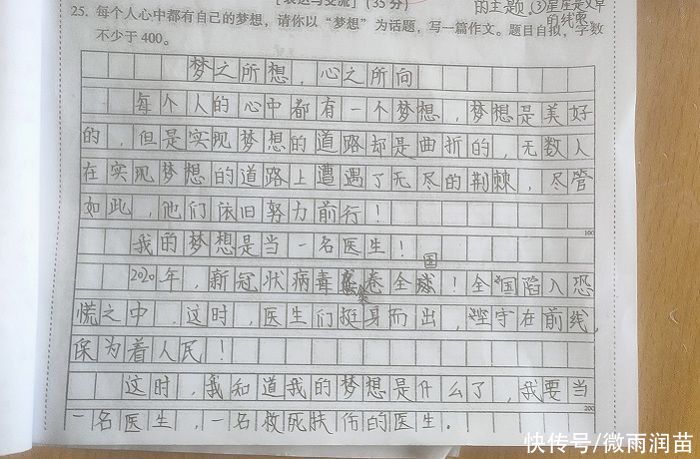 [表达与交流] (35分)
的主题,③星座是文章
的线索
25. 每个人心中都有自己的梦想,请你以“梦想”为话题,写一篇作文。题目自拟,字数
不少于400。
梦之所想,心之所向
每个人的心中都有一个梦想,梦想是美好
的,但是实现梦想的道路却是曲折的,无数人
在实现梦想的道路上遭遇了无尽的荆棘,尽管
如此,他们依旧努力前行!
100
我的梦想是当一名医生!
国
2020年,新冠状病毒席卷全球!全国陷入恐
慌之中,这时,医生们挺身而出,坚守在前线,
保为着人民!
这时,我知道我的梦想是什么了,我要当
200
一名医生,一名救死扶伤的医生.
快传号/微雨润苗